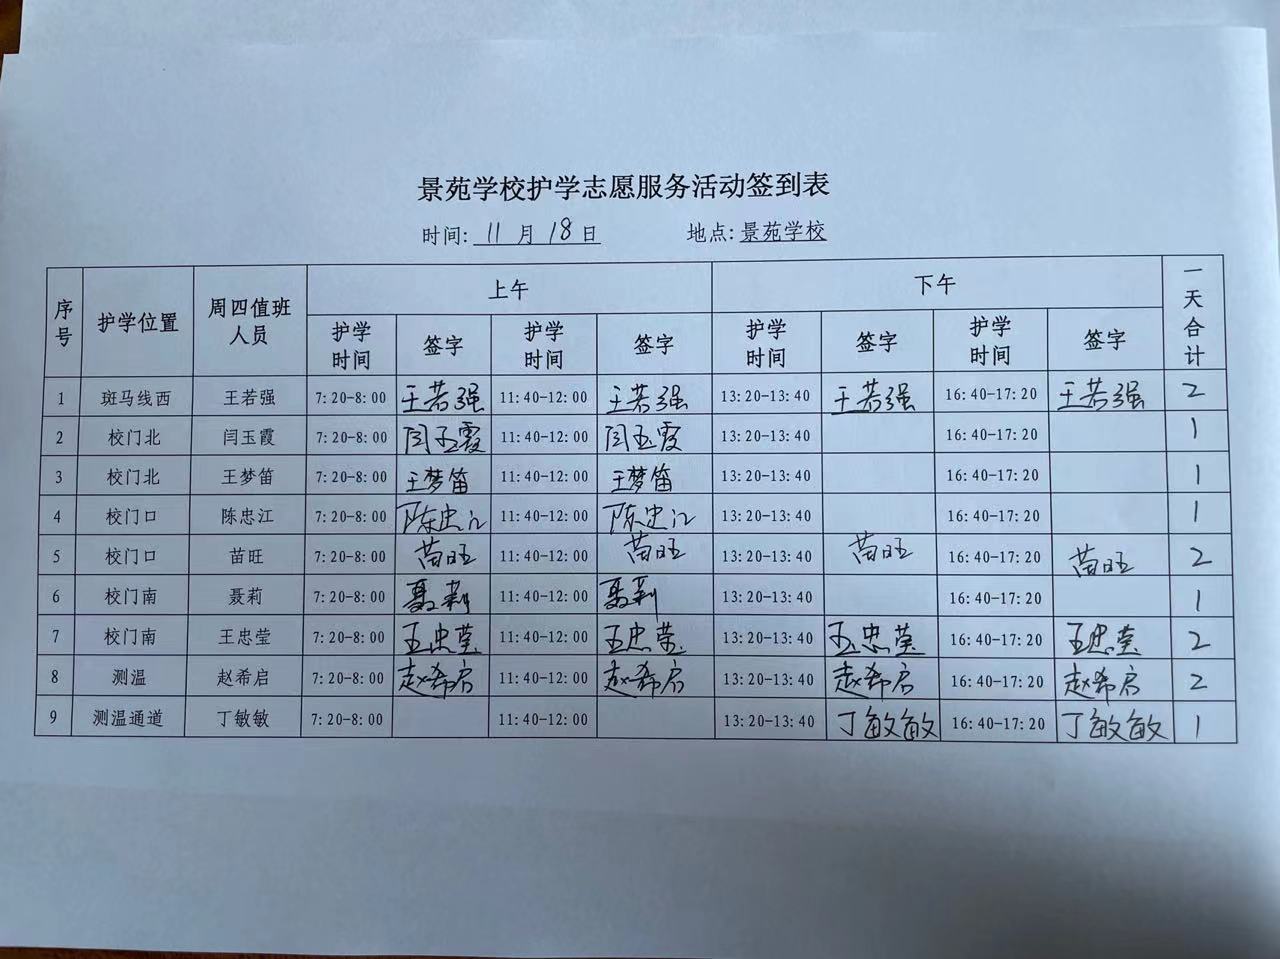 景苑学校护学志愿服务活动签到表
时间: 11 月 18 日 地点: 景苑学校
序号 护学位置 周四值班人员 上午 下午 一天合计
护学时间 签字 护学时间 签字 护学时间 签字 护学时间 签字
1 斑马线西 王若强 7:20-8:00 王若强 11:40-12:00 王若强 13:20-13:40 王若强 16:40-17:20 王若强 2
2 校门北 闫玉霞 7:20-8:00 闫玉霞 11:40-12:00 闫玉霞 13:20-13:40 16:40-17:20 1
3 校门北 王梦笛 7:20-8:00 王梦笛 11:40-12:00 王梦笛 13:20-13:40 16:40-17:20 1
4 校门口 陈忠江 7:20-8:00 陈忠江 11:40-12:00 陈忠江 13:20-13:40 16:40-17:20 1
5 校门口 苗旺 7:20-8:00 苗旺 11:40-12:00 苗旺 13:20-13:40 苗旺 16:40-17:20 苗旺 2
6 校门南 聂莉 7:20-8:00 聂莉 11:40-12:00 聂莉 13:20-13:40 16:40-17:20 1
7 校门南 王忠莹 7:20-8:00 王忠莹 11:40-12:00 王忠莹 13:20-13:40 王忠莹 16:40-17:20 王忠莹 2
8 测温 赵希启 7:20-8:00 赵希启 11:40-12:00 赵希启 13:20-13:40 赵希启 16:40-17:20 赵希启 2
9 测温通道 丁敏敏 7:20-8:00 11:40-12:00 13:20-13:40 丁敏敏 16:40-17:20 丁敏敏 1